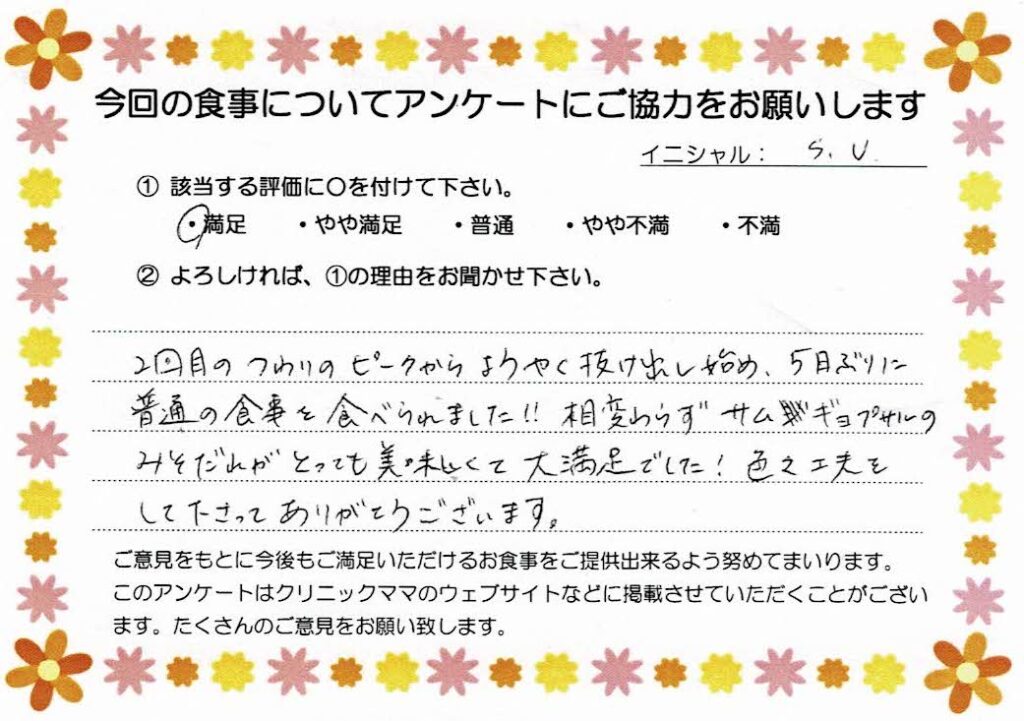 今回の食事についてアンケートにご協力をお願いします
イニシャル： S. U.
① 該当する評価に○を付けて下さい。
・満足 ・やや満足 ・普通 ・やや不満 ・不満
② よろしければ、①の理由をお聞かせ下さい。
2回目のつわりのピークからようやく抜け出し始め、5日ぶりに
普通の食事を食べられました!! 相変わらずサムギョプサルの
みそだれがとっても美味しくて大満足でした! 色々工夫を
して下さってありがとうございます。
ご意見をもとに今後もご満足いただけるお食事をご提供出来るよう努めてまいります。
このアンケートはクリニックママのウェブサイトなどに掲載させていただくことがござい
ます。たくさんのご意見をお願い致します。